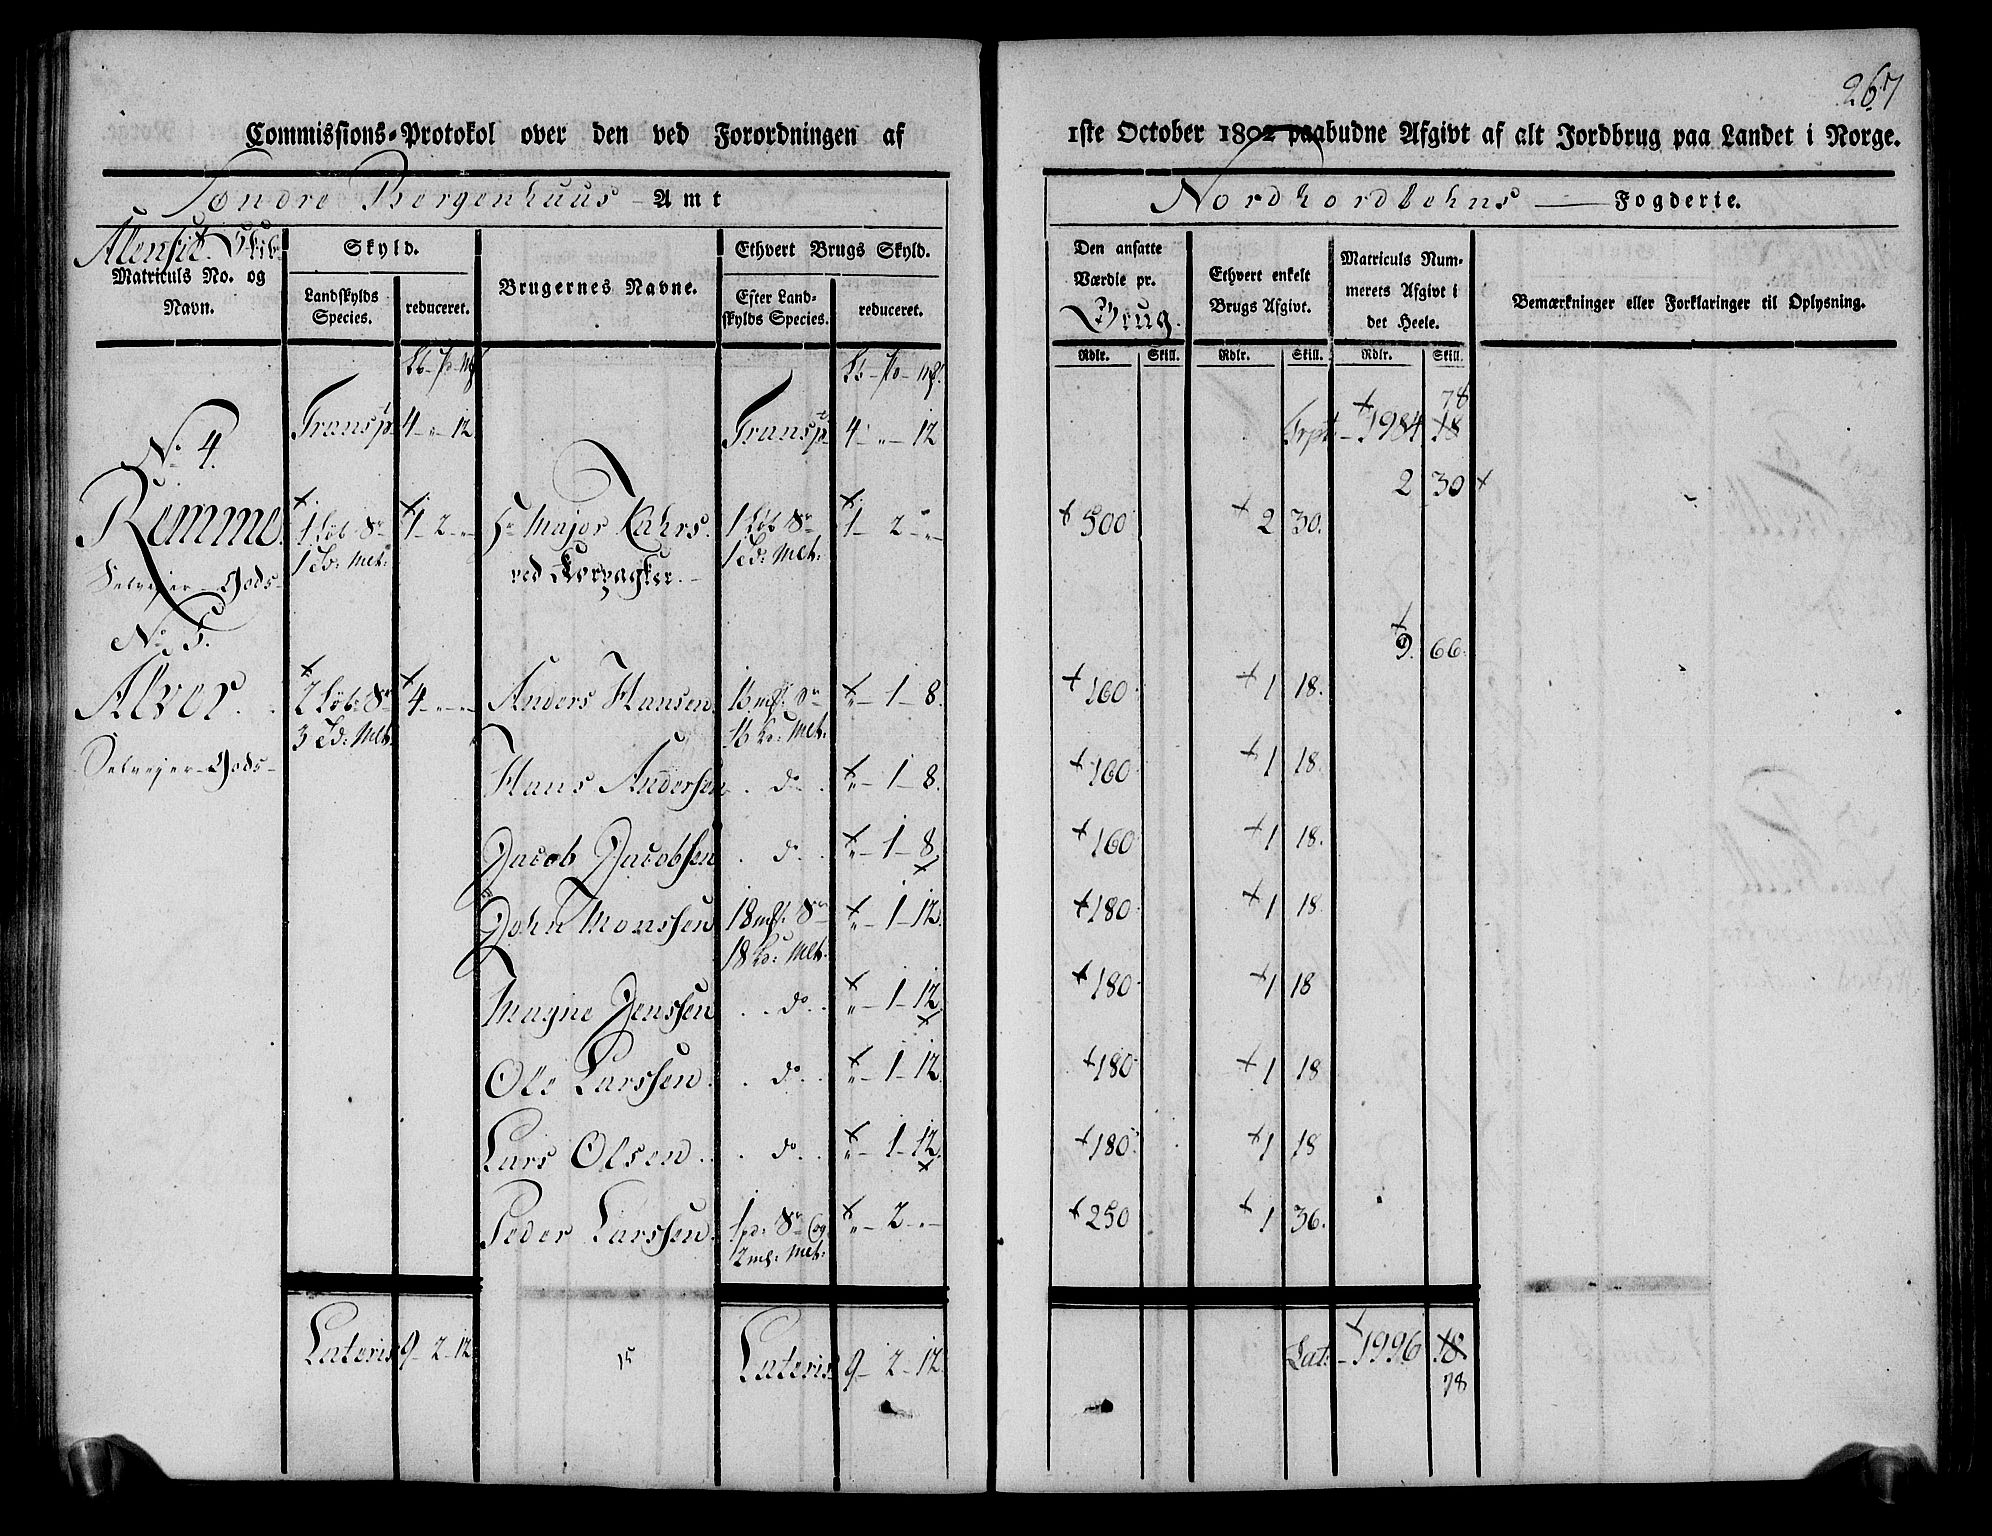 267
Commissions-Protokol over den ved Forordningen af 1ste October 1802 paabudne Afgivt af alt Jordbrug paa Landet i Norge.
Søndre Bergenhuus Amt
Nordhordlehns Fogderie.
Alensit Skib:
Matriculs No. og Navn.
Skyld.
Landskylds Species.
reduceret.
Brugernes Navne.
Ethvert Brugs Skyld.
Efter Landskylds Species.
reduceret.
Den ansatte Værdie pr. Brug.
Ethvert enkelt Brugs Afgivt.
Matriculs Nummerets Afgivt i det Heele.
Bemærkninger eller Forklaringer til Oplysning.
Rdlr. Skill. Rdlr. Skill. Rdlr. Skill.
Transpt 4 - " - 12 Transpt 4 - " - 12 Trpt. 1984 18 78
No 4.
2 30
Remme 1 Løb Sr 1 - 2 - " Hr Major Fahrs 1 Løb Sr 1 - 2 - " 500 2 30.
1 Td: Mel: ved 1 Td: Mel:
Selvejer-Gods
No 5.
9. 66
Alver. 2 Løb Sr 4 - " - " Anders Hansen 16 mk: Sr " - 1 - 8. 160 1 18.
3 Td: Mel: 16 Ka: Mel:
Selvejer-Gods
Hans Andersen do " - 1 - 8. 160 1 18.
Jacob Jacobsen do " - 1 - 8. 160 1 18.
John Monssen 18 mk: Sr " - 1 - 12. 180 1 18
18 Ka: Mel:
Magne Jenssen do " - 1 - 12 180 1 18
Ole Larssen do " - 1 - 12 180 1 18
Lars Olsen do " - 1 - 12. 180 1 18
Peder Larssen 1 pd: Sr og " - 2 - " 250 1 36.
12 mk: Mel:
Lateris 9 - 2 - 12 15 Lateris 9 - 2 - 12. Lat: 1996 18. 78